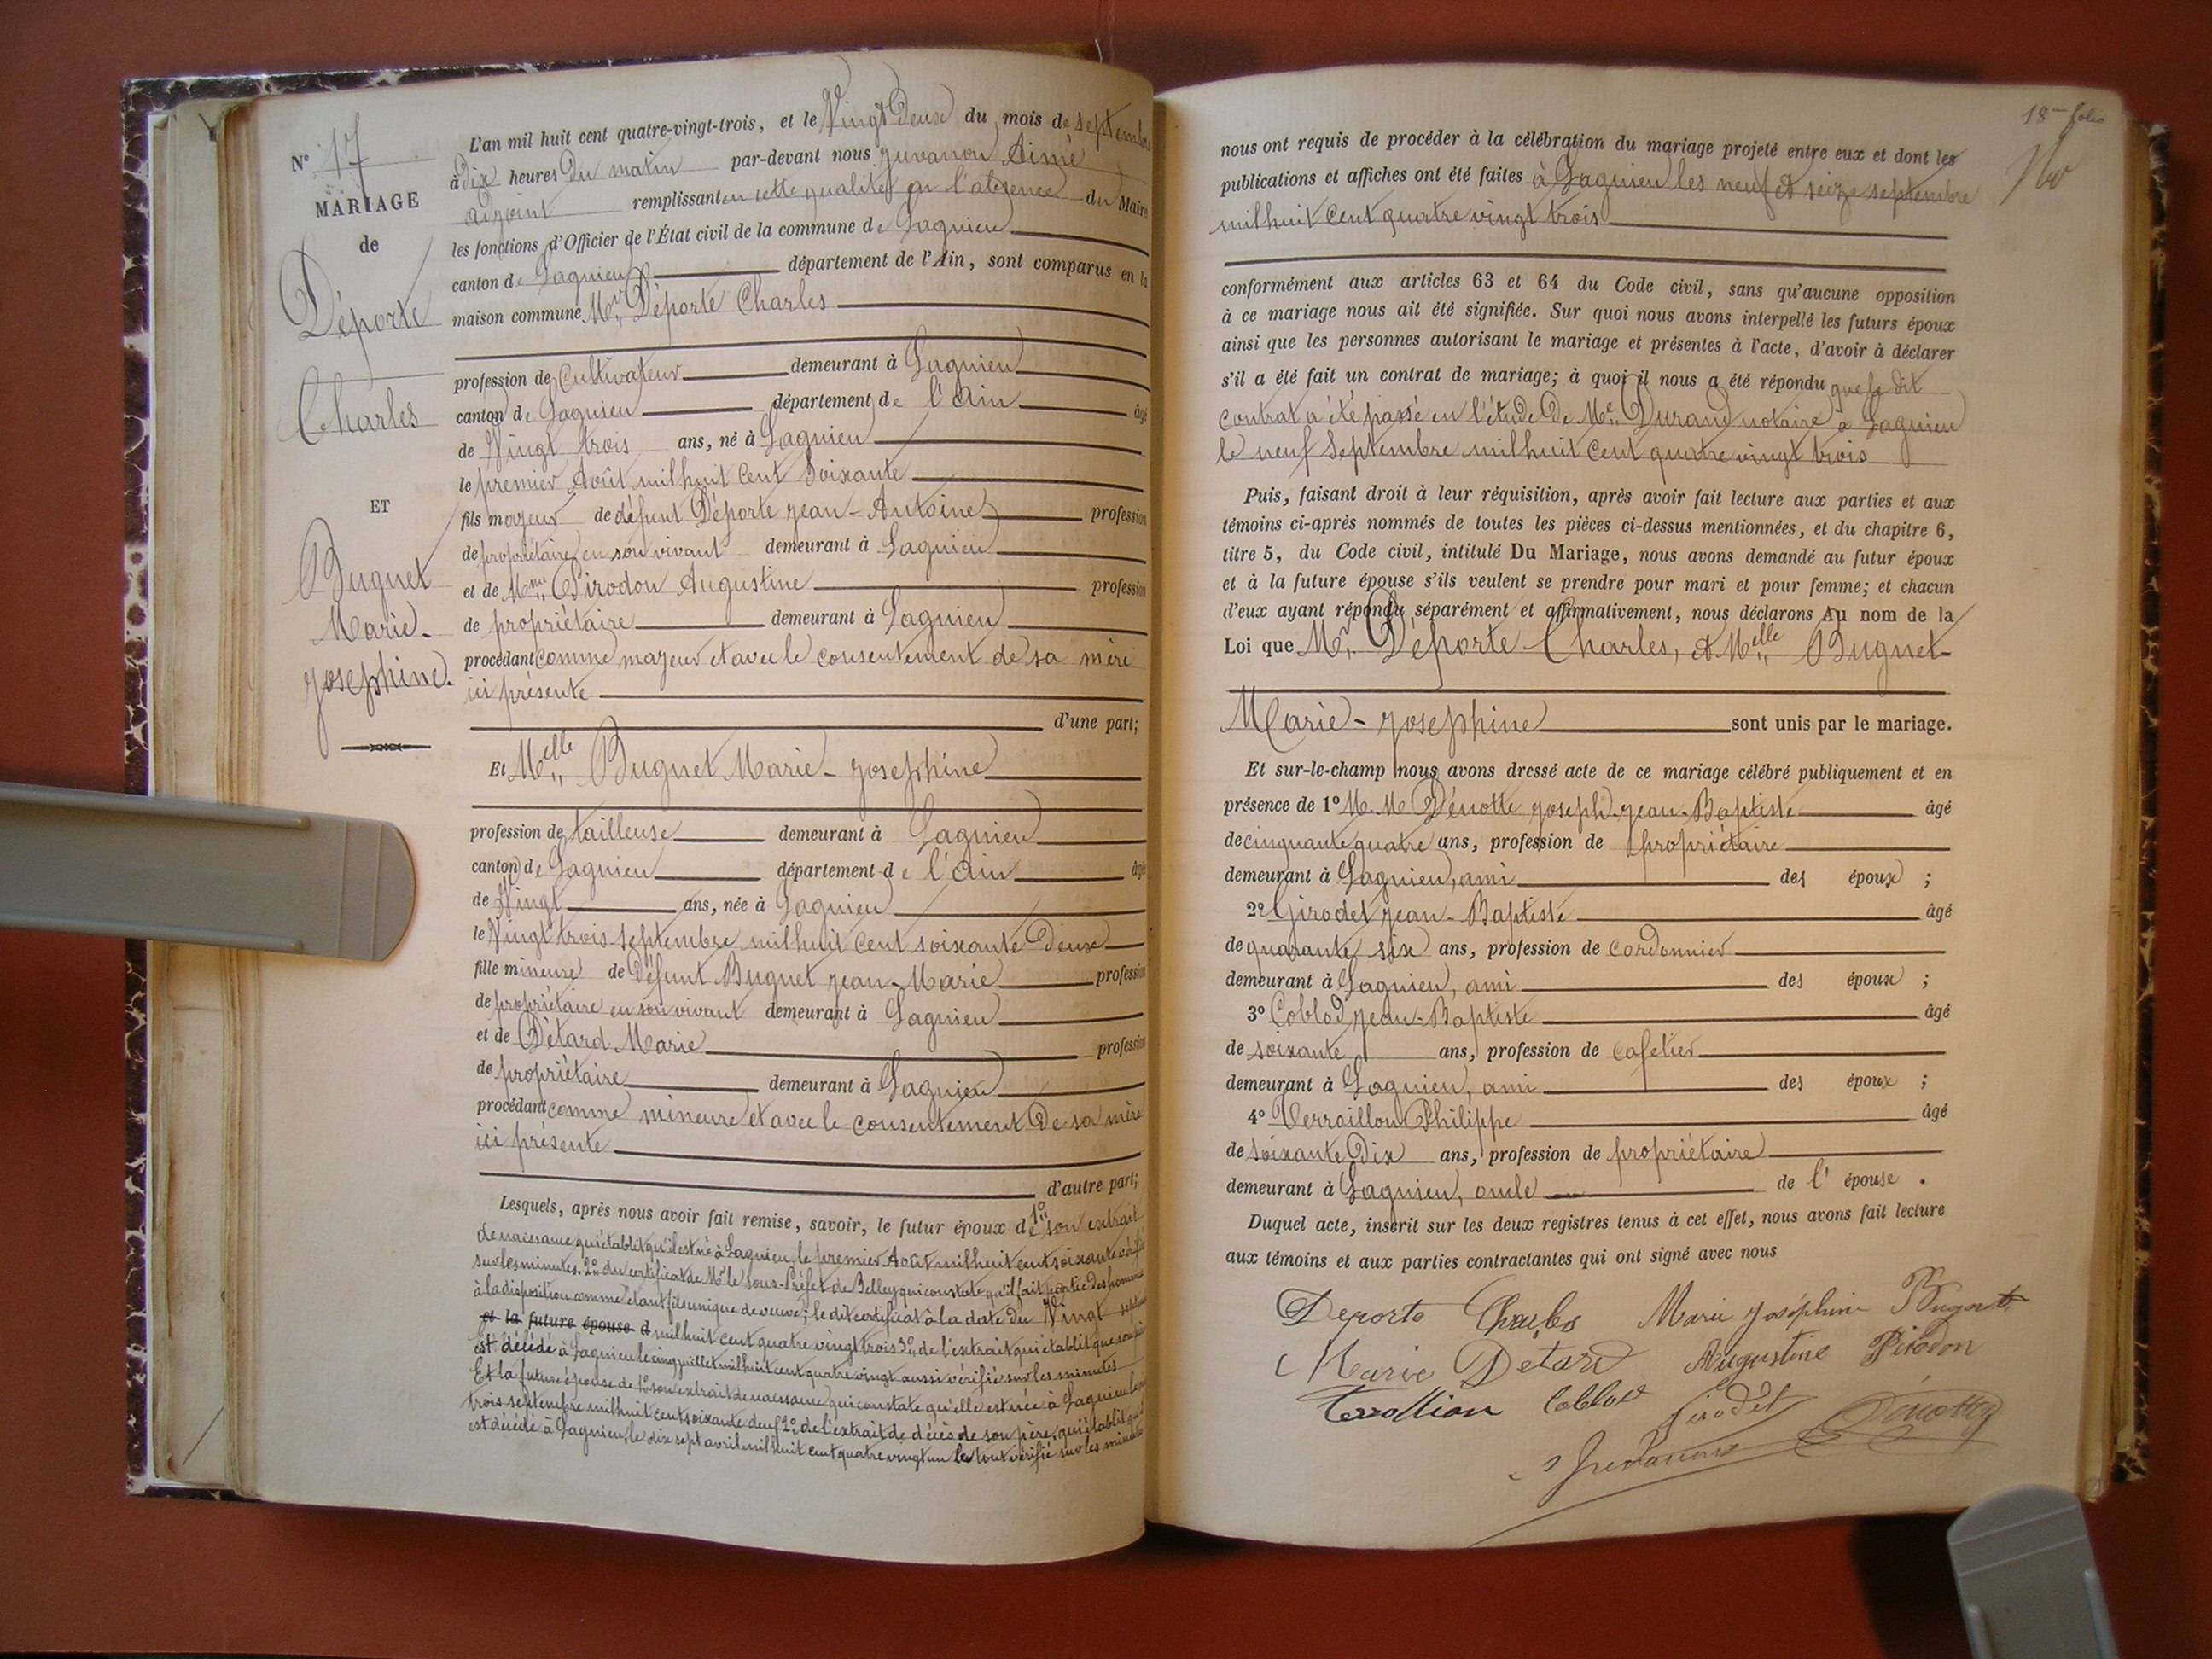 N° 17
MARIAGE
de
Déporte
Charles
ET
Buguet
Marie-
Josephine.
L'an mil huit cent quatre-vingt-trois, et le Vingt Deux du mois de septembre
à Dix heures Du matin par-devant nous Juvanon Aimé
adjoint remplissant en cette qualité par l'absence du Maire
les fonctions d'Officier de l'État civil de la commune de Lagnieu
canton de Lagnieu département de l'Ain, sont comparus en la
maison commune Mr. Déporte Charles
profession de Cultivateur demeurant à Lagnieu
canton de Lagnieu département de l'Ain âgé
de Vingt trois ans, né à Lagnieu
le premier Août mil huit cent Soixante
fils majeur de défunt Déporte Jean-Antoine profession
de propriétaire en son vivant demeurant à Lagnieu
et de Mme Pirodon Augustine profession
de propriétaire demeurant à Lagnieu
procédant comme majeur et avec le consentement de sa mère
ici présente
d'une part;
Et Melle Buguet Marie-Josephine
profession de tailleuse demeurant à Lagnieu
canton de Lagnieu département de l'Ain âgé
de Vingt ans, née à Lagnieu
le Vingt trois Septembre mil huit cent soixante Deux
fille mineure de Défunt Buguet Jean-Marie profession
de propriétaire en son vivant demeurant à Lagnieu
et de Détard Marie profession
de propriétaire demeurant à Lagnieu
procédant comme mineure et avec le consentement De sa mère
ici présente
d'autre part;
Lesquels, après nous avoir fait remise, savoir, le futur époux de 1° son extrait
de naissance qui établit qu'il est né à Lagnieu, le premier Août mil huit cent soixante vérifié
sur les minutes. 2° du certificat de Mr le Sous-Préfet de Belley qui constate qu'il fait partie des hommes
à la disposition comme étant fils unique de veuve; le dit certificat à la date du Vingt septembre
et la future épouse d mil huit cent quatre vingt trois 3° de l'extrait qui établit que son père
est décédé à Lagnieu le cinq juillet mil huit cent quatre vingt aussi vérifié sur les minutes
Et la future épouse de 1° son extrait de naissance qui constate qu'elle est née à Lagnieu le
trois septembre mil huit cent soixante deux 2° de l'extrait de décès de son père, qui établit qu'il
est décédé à Lagnieu, le dix sept avril mil huit cent quatre vingt un le tout vérifié sur les minutes
18me folio
nous ont requis de procéder à la célébration du mariage projeté entre eux et dont les
publications et affiches ont été faites à Lagnieu les neuf et seize septembre
mil huit cent quatre vingt trois
conformément aux articles 63 et 64 du Code civil, sans qu'aucune opposition
à ce mariage nous ait été signifiée. Sur quoi nous avons interpellé les futurs époux
ainsi que les personnes autorisant le mariage et présentes à l'acte, d'avoir à déclarer
s'il a été fait un contrat de mariage; à quoi il nous a été répondu que le dit
contrat a été passé en l'étude De Me Durand notaire à Lagnieu
le neuf Septembre mil huit cent quatre vingt trois
Puis, faisant droit à leur réquisition, après avoir fait lecture aux parties et aux
témoins ci-après nommés de toutes les pièces ci-dessus mentionnées, et du chapitre 6,
titre 5, du Code civil, intitulé Du Mariage, nous avons demandé au futur époux
et à la future épouse s'ils veulent se prendre pour mari et pour femme; et chacun
d'eux ayant répondu séparément et affirmativement, nous déclarons Au nom de la
Loi que Mr. Déporte Charles, et Melle Buguet
Marie-Josephine sont unis par le mariage.
Et sur-le-champ nous avons dressé acte de ce mariage célébré publiquement et en
présence de 1° M.M Dénotte Joseph-Jean-Baptiste âgé
de cinquante quatre ans, profession de propriétaire
demeurant à Lagnieu, ami des époux ;
2° Girodet Jean-Baptiste âgé
de quarante six ans, profession de cordonnier
demeurant à Lagnieu, ami des époux ;
3° Coblod Jean-Baptiste âgé
de soixante ans, profession de cafetier
demeurant à Lagnieu, ami des époux ;
4° Verraillon Philippe âgé
de soixante Dix ans, profession de propriétaire
demeurant à Lagnieu, oncle de l'épouse .
Duquel acte, inscrit sur les deux registres tenus à cet effet, nous avons fait lecture
aux témoins et aux parties contractantes qui ont signé avec nous
Deporte Charles Marie Joséphine Buguet
Marie Detard Augustine Pirodon
Coblod Girodet Dénotte
Juvanon